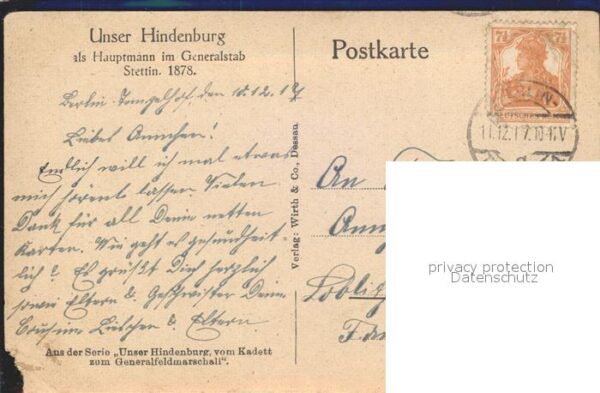 Unser Hindenburg
als Hauptmann im Generalstab
Stettin. 1878.
Postkarte
7½ 7½
DEUTSCHES REICH
BERLIN-
11.12.17.10-11V
Berlin-Tempelhof, den 10.12.17
Liebes Annchen!
Endlich will ich mal etwas
mich hören lassen. Vielen
Dank für all Deine netten
Karten. Wie geht es gesundheit-
lich? Es grüßt Dich herzlich
sowie Eltern & Geschwister Deine
Cousine Lieschen & Eltern.
Aus der Serie „Unser Hindenburg, vom Kadett
zum Generalfeldmarschall".
Verlag: Wirth & Co., Dessau.
An
privacy protection
Datenschutz